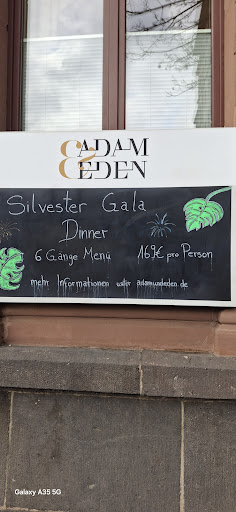 & ADAM
EDEN
Silvester Gala
Dinner
6 Gänge Menü 169€ pro Person
mehr Informationen unter adamundeden.de
Galaxy A35 5G